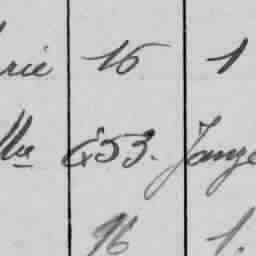 rie 16 1
lle 53. Janze
16 1.